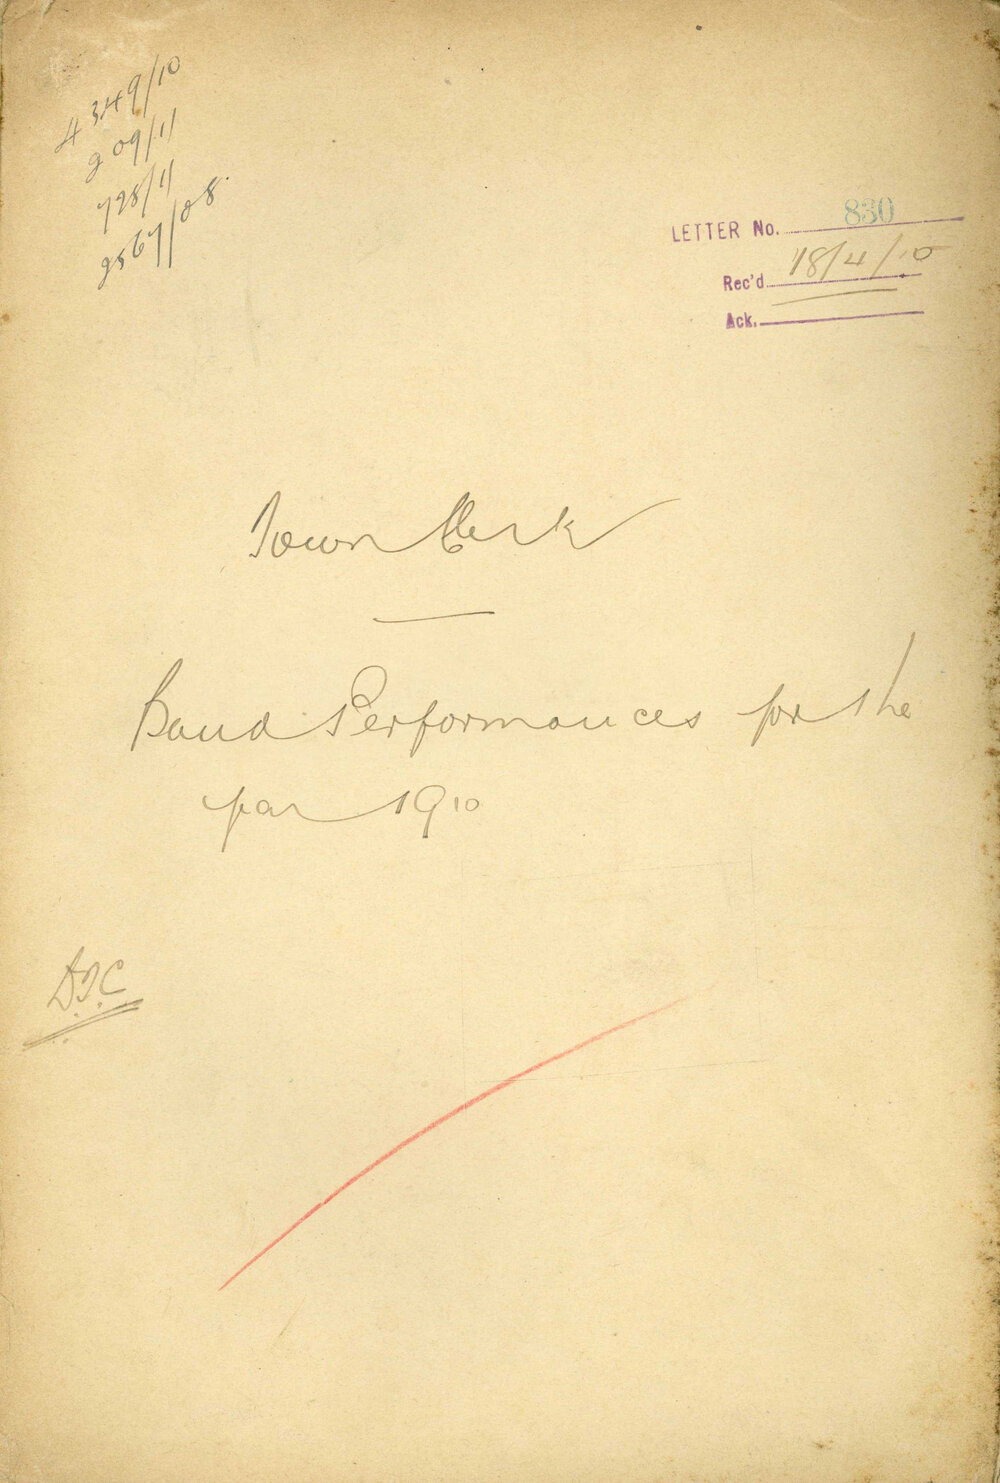 4349/10
209/11
728/11
2567/08
LETTER No. 830
Rec'd 18/4/10
Ack.
Town Clerk
Band Performances for the
year 1910